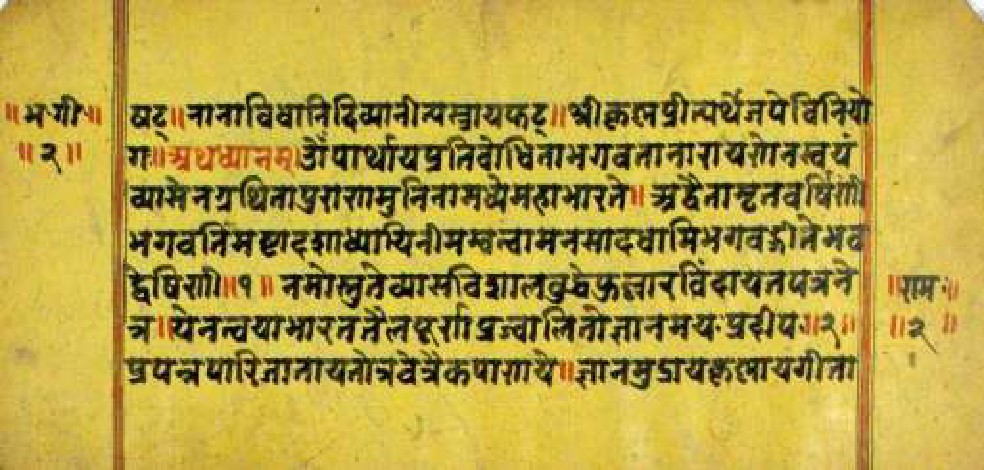 ॥ भ॰गी॰ ॥
॥ २ ॥
षट् ॥ नानाविधानि दिव्यानीत्यस्त्रायफट् ॥ श्रीकृष्णप्रीत्यर्थे जपे विनियो
ग ॥ अथध्यानम् ॥ ॐपार्थायप्रतिबोधितांभगवतानारायणेनस्वयं
व्यासेनग्रथितापुराणमुनिनामध्येमहाभारते ॥ अद्वैतामृतवर्षिणीं
भगवतिमष्टादशाध्यायिनीमम्बत्वामनसादधामिभगवद्गीतेभव
द्वेषिणी ॥ १ ॥ नमोस्तुतेव्यासविशालबुद्धेफुल्लारविंदायतपत्रने
त्र ॥ येनत्वयाभारततैलपूर्णाप्रज्वालितोज्ञानमय॰प्रदीप॰ ॥ २ ॥
प्रपन्नपारिजातायतोत्रवेत्रैकपाणये ॥ ज्ञानमुद्रायकृष्णायगीता
॥ राम॰ ॥
॥ २ ॥